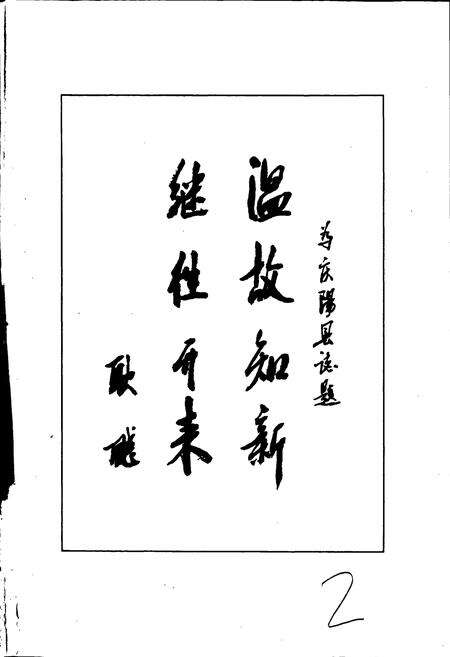 为庆陽县誌题
温故知新
继往开来
耿飚